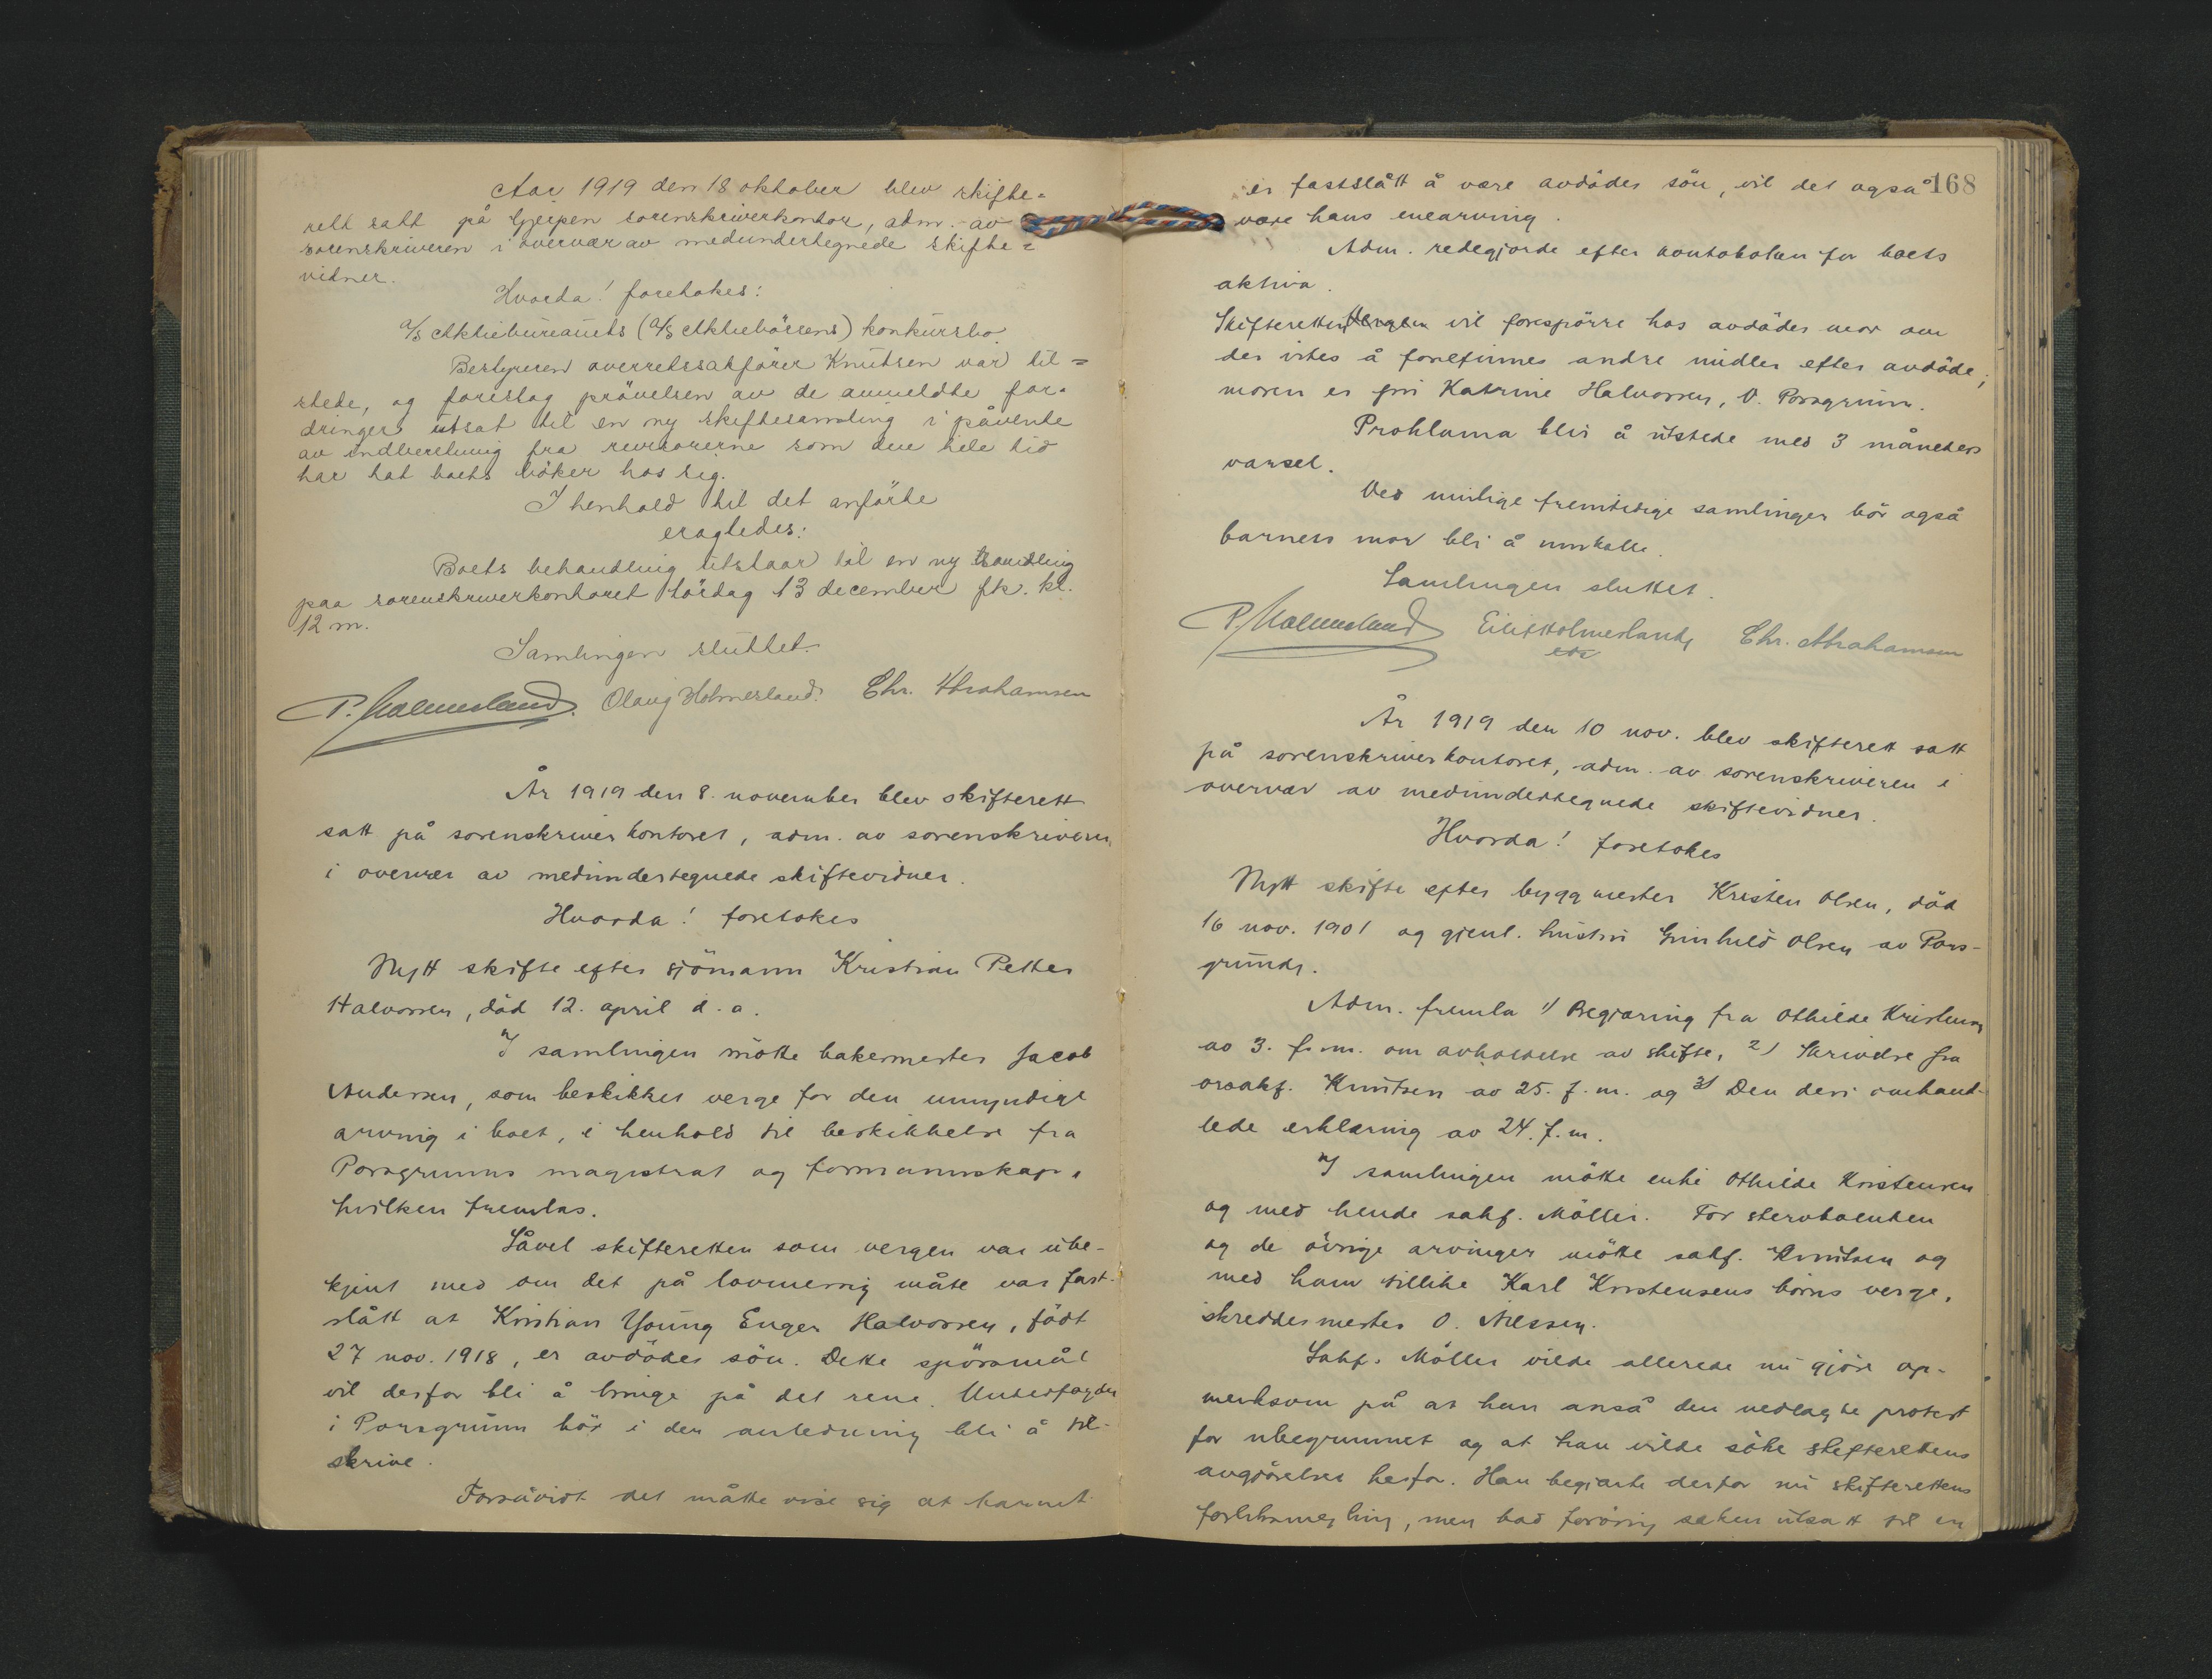 Aar 1919 den 18 oktober blev skifte=
rett satt på Gjerpen sorenskriverkontor, adm. av
sorenskriveren i overvær av medundertegnede skifte=
vidner.
Hvorda! foretokes:
A/S Aktiebureauets (A/S Aktiebörsens) konkursbo.
Bestyreren overretssakfører Knutsen var til=
stede, og foreslog prövelsen av de anmeldte for-
dringer utsat til en ny skiftesamling i påvente
av indberetning fra revisorerne som den hele tid
har hat boets böker hos sig.
I henhold til det anförte
eragtedes:
Boets behandling utstaar til en ny samling
paa sorenskriverkontoret lördag 13 december fk. kl.
12 m.
Samlingen sluttet.
P. Holmesland. Olaug Holmesland. Chr. Abrahamsen
År 1919 den 8. november blev skifterett
satt på sorenskriverkontoret, adm. av sorenskriveren
i overvær av medundertegnede skiftevidner.
Hvorda! foretokes
Nytt skifte efter sjömann Kristian Petter
Halvorsen, död 12. april d. a.
I samlingen mötte bakermester Jacob
Andersen, som beskikket verge for den umyndige
arving i boet, i henhold til beskikkelse fra
Porsgrunns magistrat og formannskap,
hvilken fremlas.
Såvel skifteretten som vergen var ube-
kjent med om det på lovmessig måte var fast-
slått at Kristian Young Enger Halvorsen, födt
27 nov. 1918, er avdödes sön. Dette spörsmål
vil derfor bli å bringe på det rene. Underfogden
i Porsgrunn bör i den anledning bli å til-
skrive.
Forsåvidt det måtte vise sig at barnet
168
er fastslått å være avdödes sön, vil det også
være hans enearving.
Adm. redegjorde efter kontoboken for boets
aktiva.
Skifteretten vil forespörre hos avdödes mor om
der vites å forefinnes andre midler efter avdöde;
moren er fru Katrine Halvorsen, V. Porsgrunn.
Proklama blir å utstede med 3 måneders
varsel.
Ved mulige fremtidige samlinger bör også
barnets mor bli å innkalle.
Samlingen sluttet.
P. Holmesland Eilif Holmesland Chr. Abrahamsen
År 1919 den 10 nov. blev skifterett satt
på sorenskriverkontoret, adm. av sorenskriveren i
overvær av medundertegnede skiftevidner.
Hvorda! foretokes
Nytt skifte efter byggmester Kristen Olsen, död
16 nov. 1901 og gjenl. hustru Gunhild Olsen av Pors-
grund.
Adm. fremla 1) Begjæring fra Othilde Kristensen
av 3. f. m. om avholdelse av skifte, 2) Skrivelse fra
orsakf. Knutsen av 25. f. m. og 3) Den deri omhand-
lede erklæring av 24. f. m.
I samlingen mötte enke Othilde Kristensen
og med hende sakf. Möller. For stervboenken
og de övrige arvinger mötte sakf. Knutsen og
med ham tillike Karl Kristensens börns verge,
skreddermester O. Nilssen.
Sakf. Möller vilde allerede nu gjöre op-
merksom på at han anså den nedlagte protest
for ubegrunnet og at han vilde söke skifterettens
avgjörelse herfor. Han begjærte derfor nu skifterettens
men bad forövrig saken utsatt til en